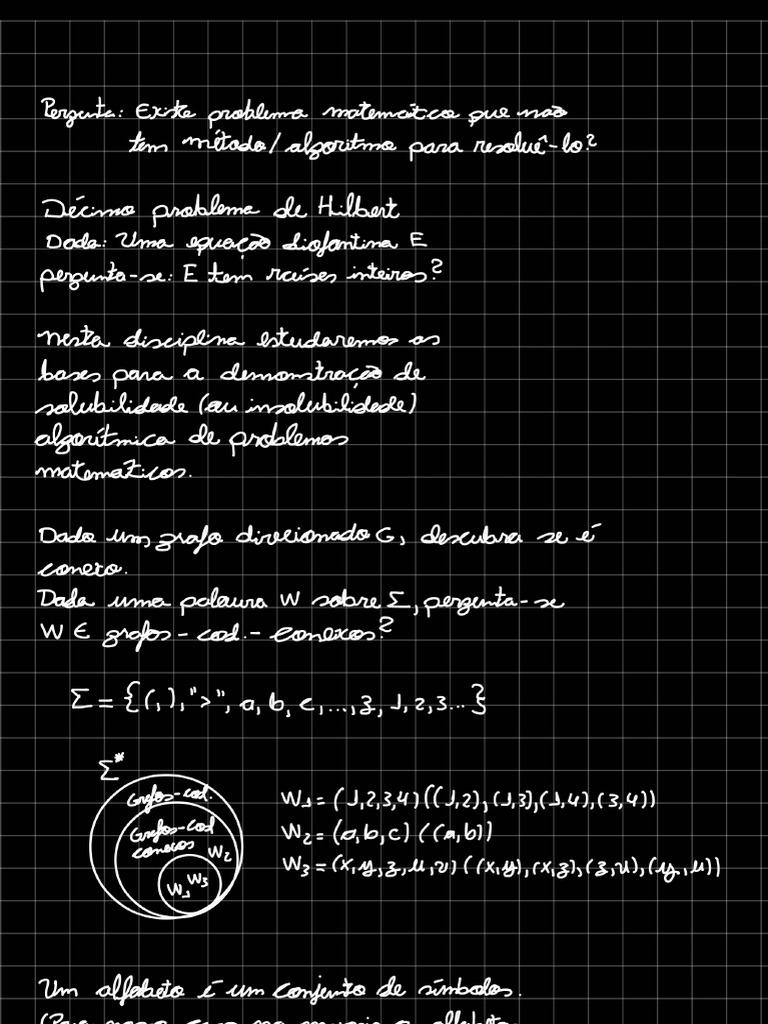 Pergunta: Existe problema matemático que não
tem método/algoritmo para resolvê-lo?
Décimo problema de Hilbert
Dada: Uma equação diofantina E
pergunta-se: E tem raíses inteiros?
Nesta disciplina estudaremos as
bases para a demonstração de
solubilidade (ou insolubilidade)
algorítmica de problemas
matemáticos.
Dado um grafo direcionado G, descubra se é
conexo.
Dada uma palavra W sobre Σ, pergunta-se
W ∈ grafos-cod.-conexos?
Σ = {(, ), ">", a, b, c, ..., z, 1, 2, 3...}
Σ*
Grafos-cod.
Grafos-cod
conexos
W2
W1 W3
W1 = (1,2,3,4)((1,2),(1,3),(1,4),(3,4))
W2 = (a,b,c)((a,b))
W3 = (x,y,z,u,v)((x,y),(x,z),(z,u),(y,u))
Um alfabeto é um conjunto de símbolos.
alfabeto